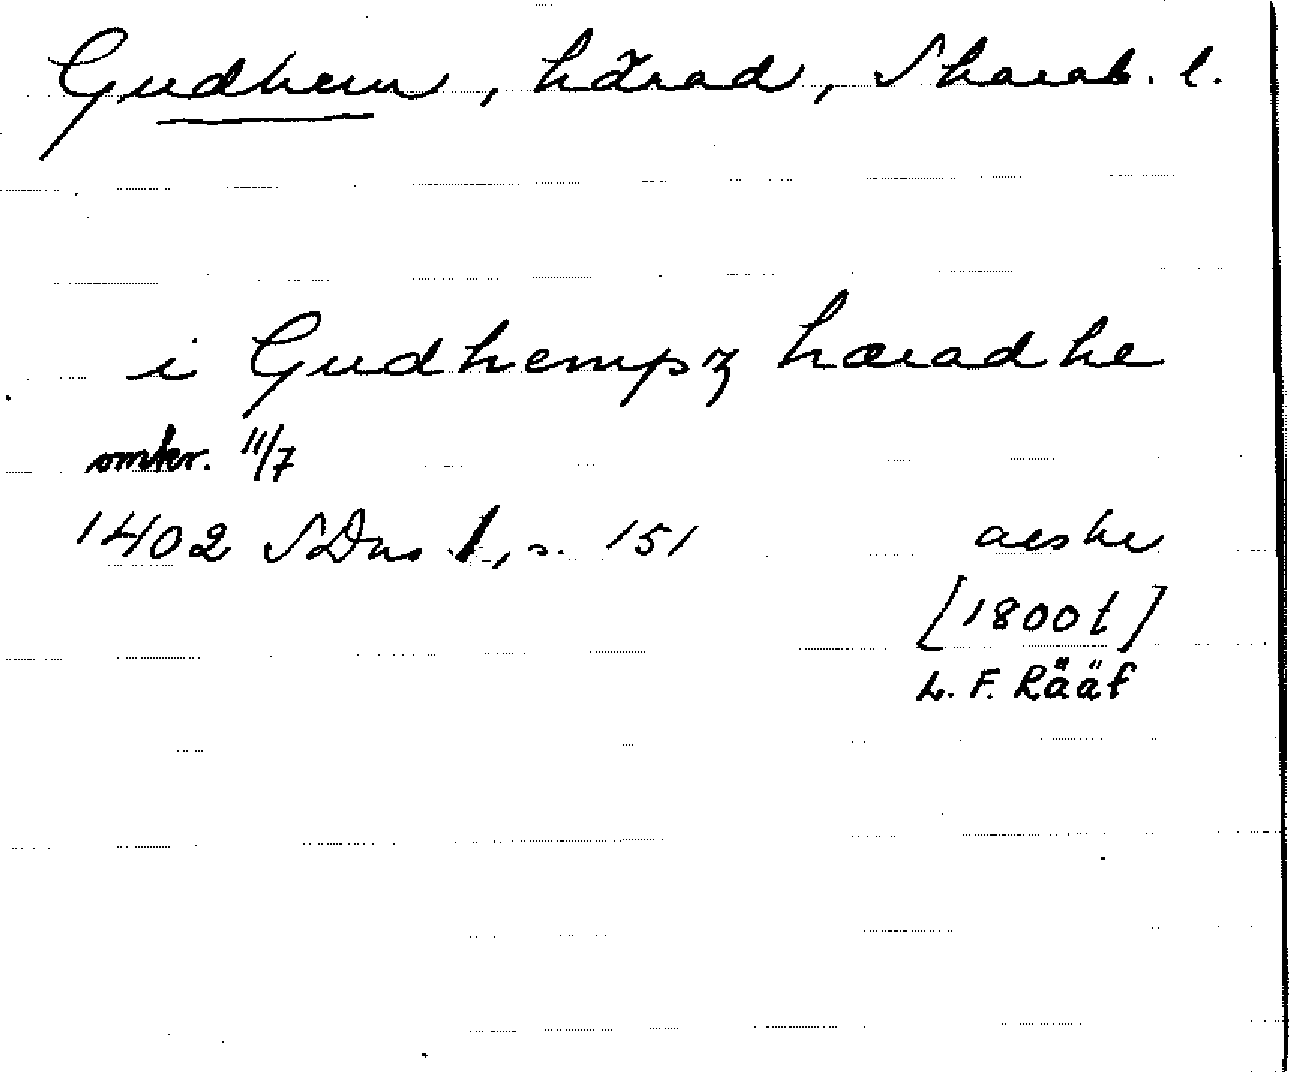 Gudhem, härad, Skarab. l.
i Gudhempz hæradhe
omkr. 11/7
1402 SDns 1, s. 151
avskr
[1800t]
L. F. Rääf